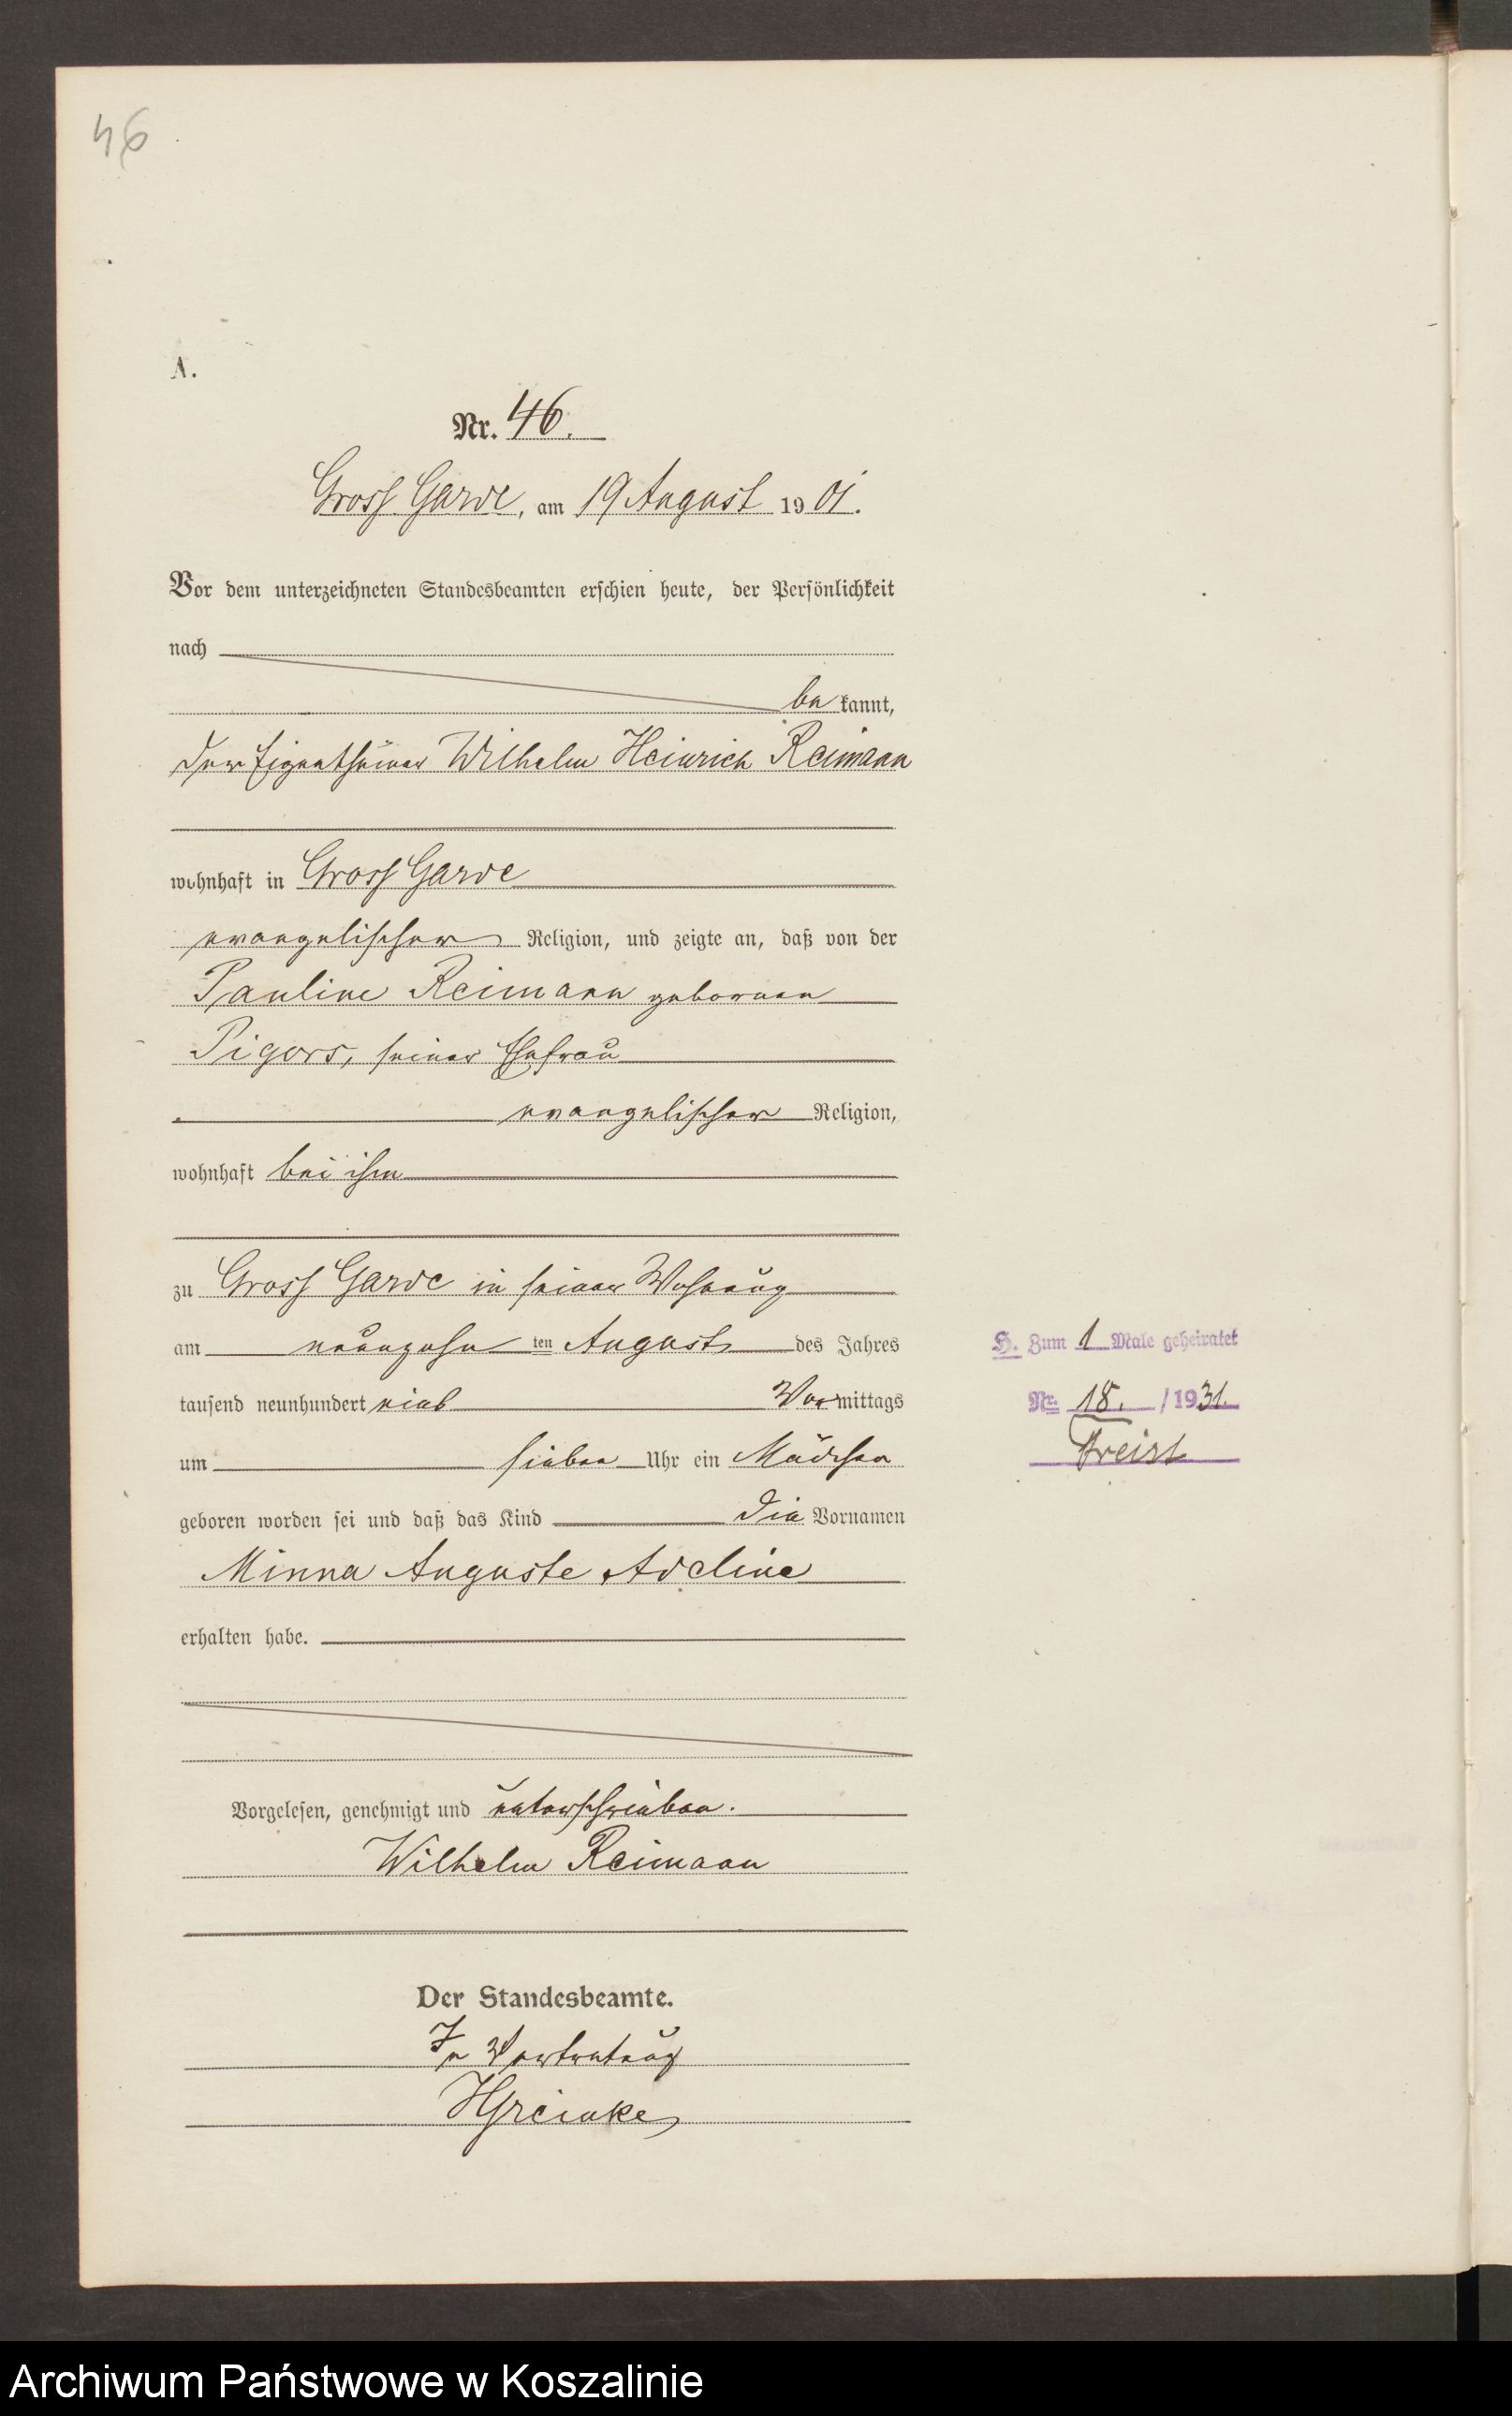 46
A.
Nr. 46.
Gross Garde, am 19 August 1901.
Vor dem unterzeichneten Standesbeamten erschien heute, der Persönlichkeit
nach
bekannt,
der Eigenthümer Wilhelm Heinrich Reimann
wohnhaft in Gross Garde
evangelischer Religion, und zeigte an, daß von der
Pauline Reimann geborenen
Pigors, seiner Ehefrau
evangelischer Religion,
wohnhaft bei ihm
zu Gross Garde in seiner Wohnung
am neunzehnten August des Jahres
tausend neunhundert eins Vormittags
um sieben Uhr ein Mädchen
geboren worden sei und daß das Kind die Vornamen
Minna Auguste Adeline
erhalten habe.
Vorgelesen, genehmigt und unterschrieben.
Wilhelm Reimann
Der Standesbeamte.
In Vertretung
H. Zum 1 Male geheiratet
Nr. 18. /1931.
Freist
Archiwum Państwowe w Koszalinie